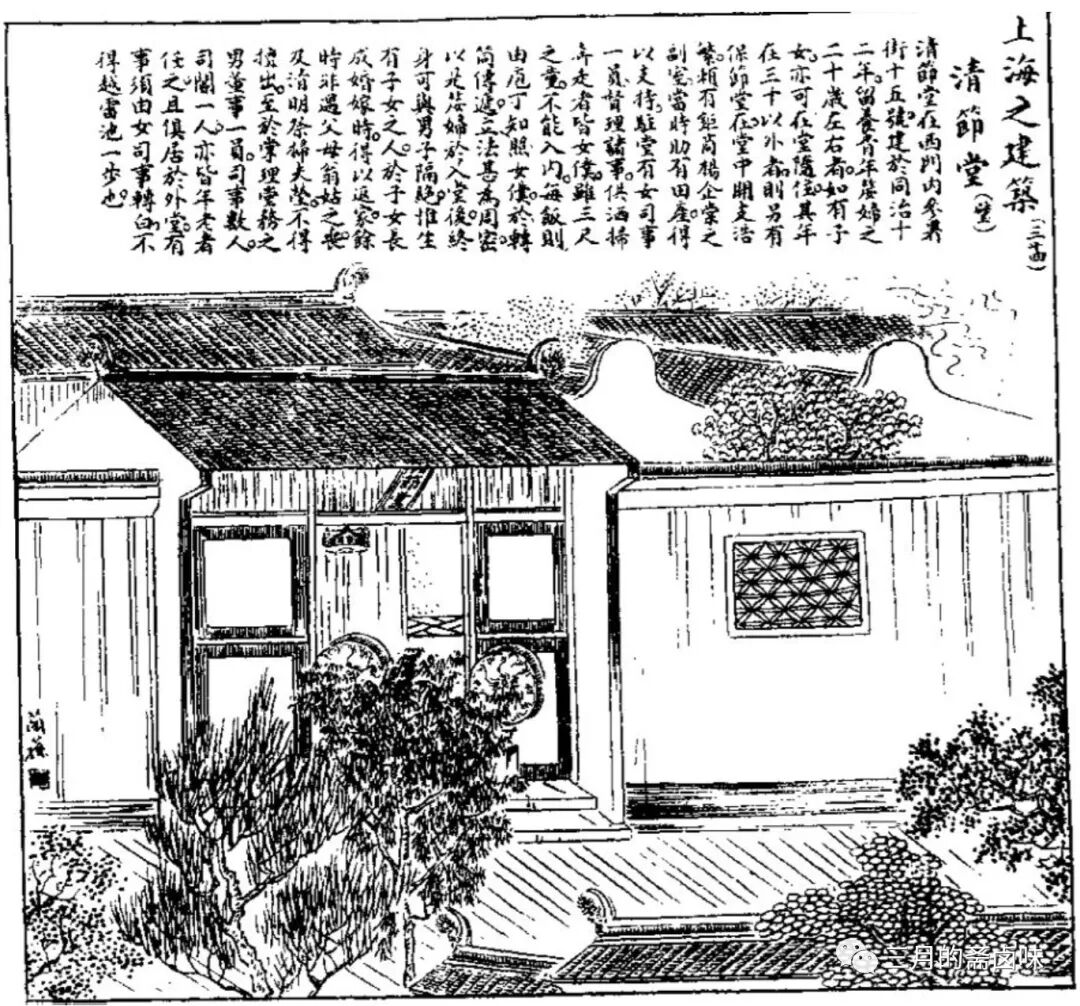 上海之建築
(三十四)
清節堂
清節堂在西門内多素
街十五號建於同治十
二年留養青年嫠婦之
二十歲左右者如有子
女亦可在堂隨住其年
在三十以外者則另有
保節堂在堂中開支浩
繁頗有鉅商楊企棠之
副室當時助有田産得
以支持駐堂有女司事
一員督理諸事供洒掃
奔走者皆女僕雖三尺
之童不能入内每飯則
由庖丁知照女僕於轉
筒傳遞立法甚為周密
以是嫠婦於入堂後終
身可與男子隔絶惟生
有子女之人於子女長
成婚嫁時得以返家餘
時非遇父母翁姑之喪
及清明祭掃夫塋不得
擅出至於掌理堂務之
男董事一員司事數人
司閽一人亦皆年老者
任之且俱居於外堂有
事須由女司事轉白不
得越雷池一步也
二月的斋卤味